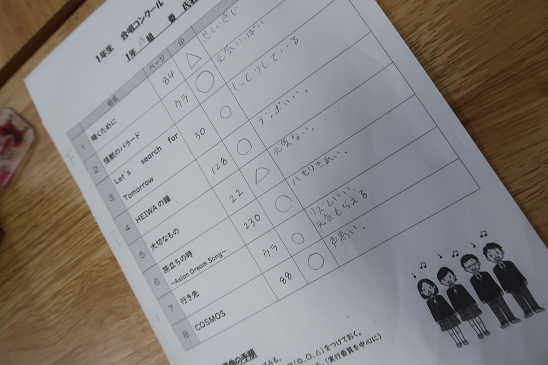 1年生 合唱コンクール
1年 A組 番 氏
曲名 ページ 印
1 輝くために 84 △ 出い感じ
2 怪獣のバラード ウラ ○ 元気いっぱい
3 Let's search for Tomorrow 30 ○ しっくりしている
4 HEIWAの鐘 128 ○ テンポいい。
5 大切なもの 22 △ 元気ない。
6 旅立ちの時 ~Asian Dream Song~ 230 ○ ハモりきれい。
7 行き先 ウラ ○ 元気もらえる
8 COSMOS 88 ○
(◎、○、△)をつけておく。
(実行委員を中心に)